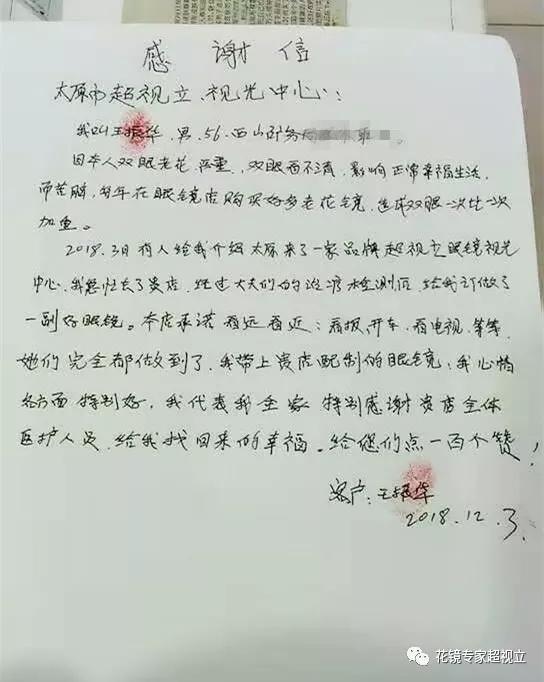 感谢信
太原市超视立、视光中心:
我叫王振华,男,56,西山
因本人双眼老花,严重,双眼看不清,影响正常幸福生活,
而苦脑,每年在眼镜店购买好多老花镜,造成双眼一次比一次
加重。
2018.3月有人给我介绍太原来了一家品牌超视立眼镜视光
中心,我急忙去了贵店,经过大夫们的治疗检测后,给我订做了
一副好眼镜。本店承诺看远看近:看报,开车,看电视,等等,
她们完全都做到了,我带上贵店配制的眼镜,我心情
各方面特别好,我代表我全家特别感谢贵店全体
医护人员,给我找回来的幸福。给您们点一百个赞!
客户:王振华
2018.12.3.
花镜专家超视立